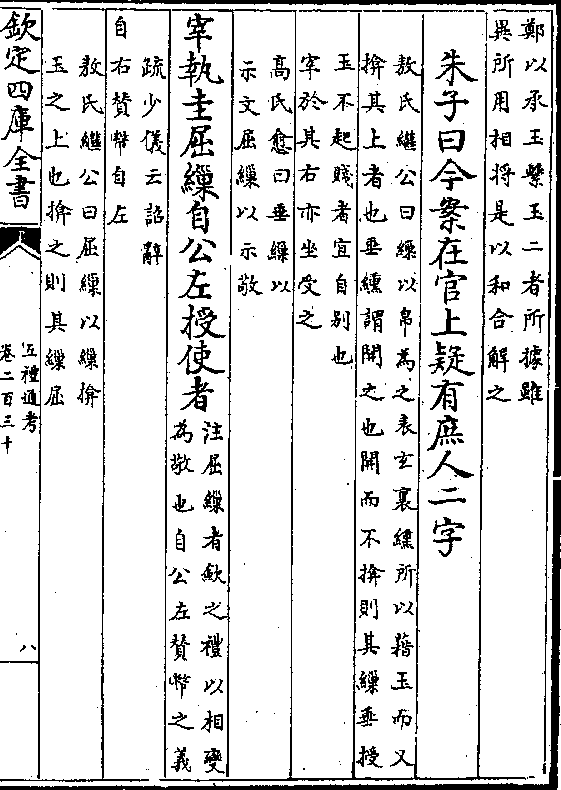 鄭以承玉繫玉二者所據雖
異所用相將是以和合解之
朱子曰今案在官上疑有庶人二字
敖氏繼公曰繅以帛為之表玄裏纁所以藉玉而又
揜其上者也垂繅謂開之也開而不揜則其繅垂授
玉不起賤者宜自别也
宰於其右亦坐受之
高氏愈曰垂繅以
示文屈繅以示敬
宰執圭屈繅自公左授使者
注屈繅者斂之禮以相變
為敬也自公左贊幣之義
疏少儀云詔辭
自右贊幣自左
敖氏繼公曰屈繅以繅揜
玉之上也揜之則其繅屈
欽定四庫全書
五禮通考
卷二百三十
八